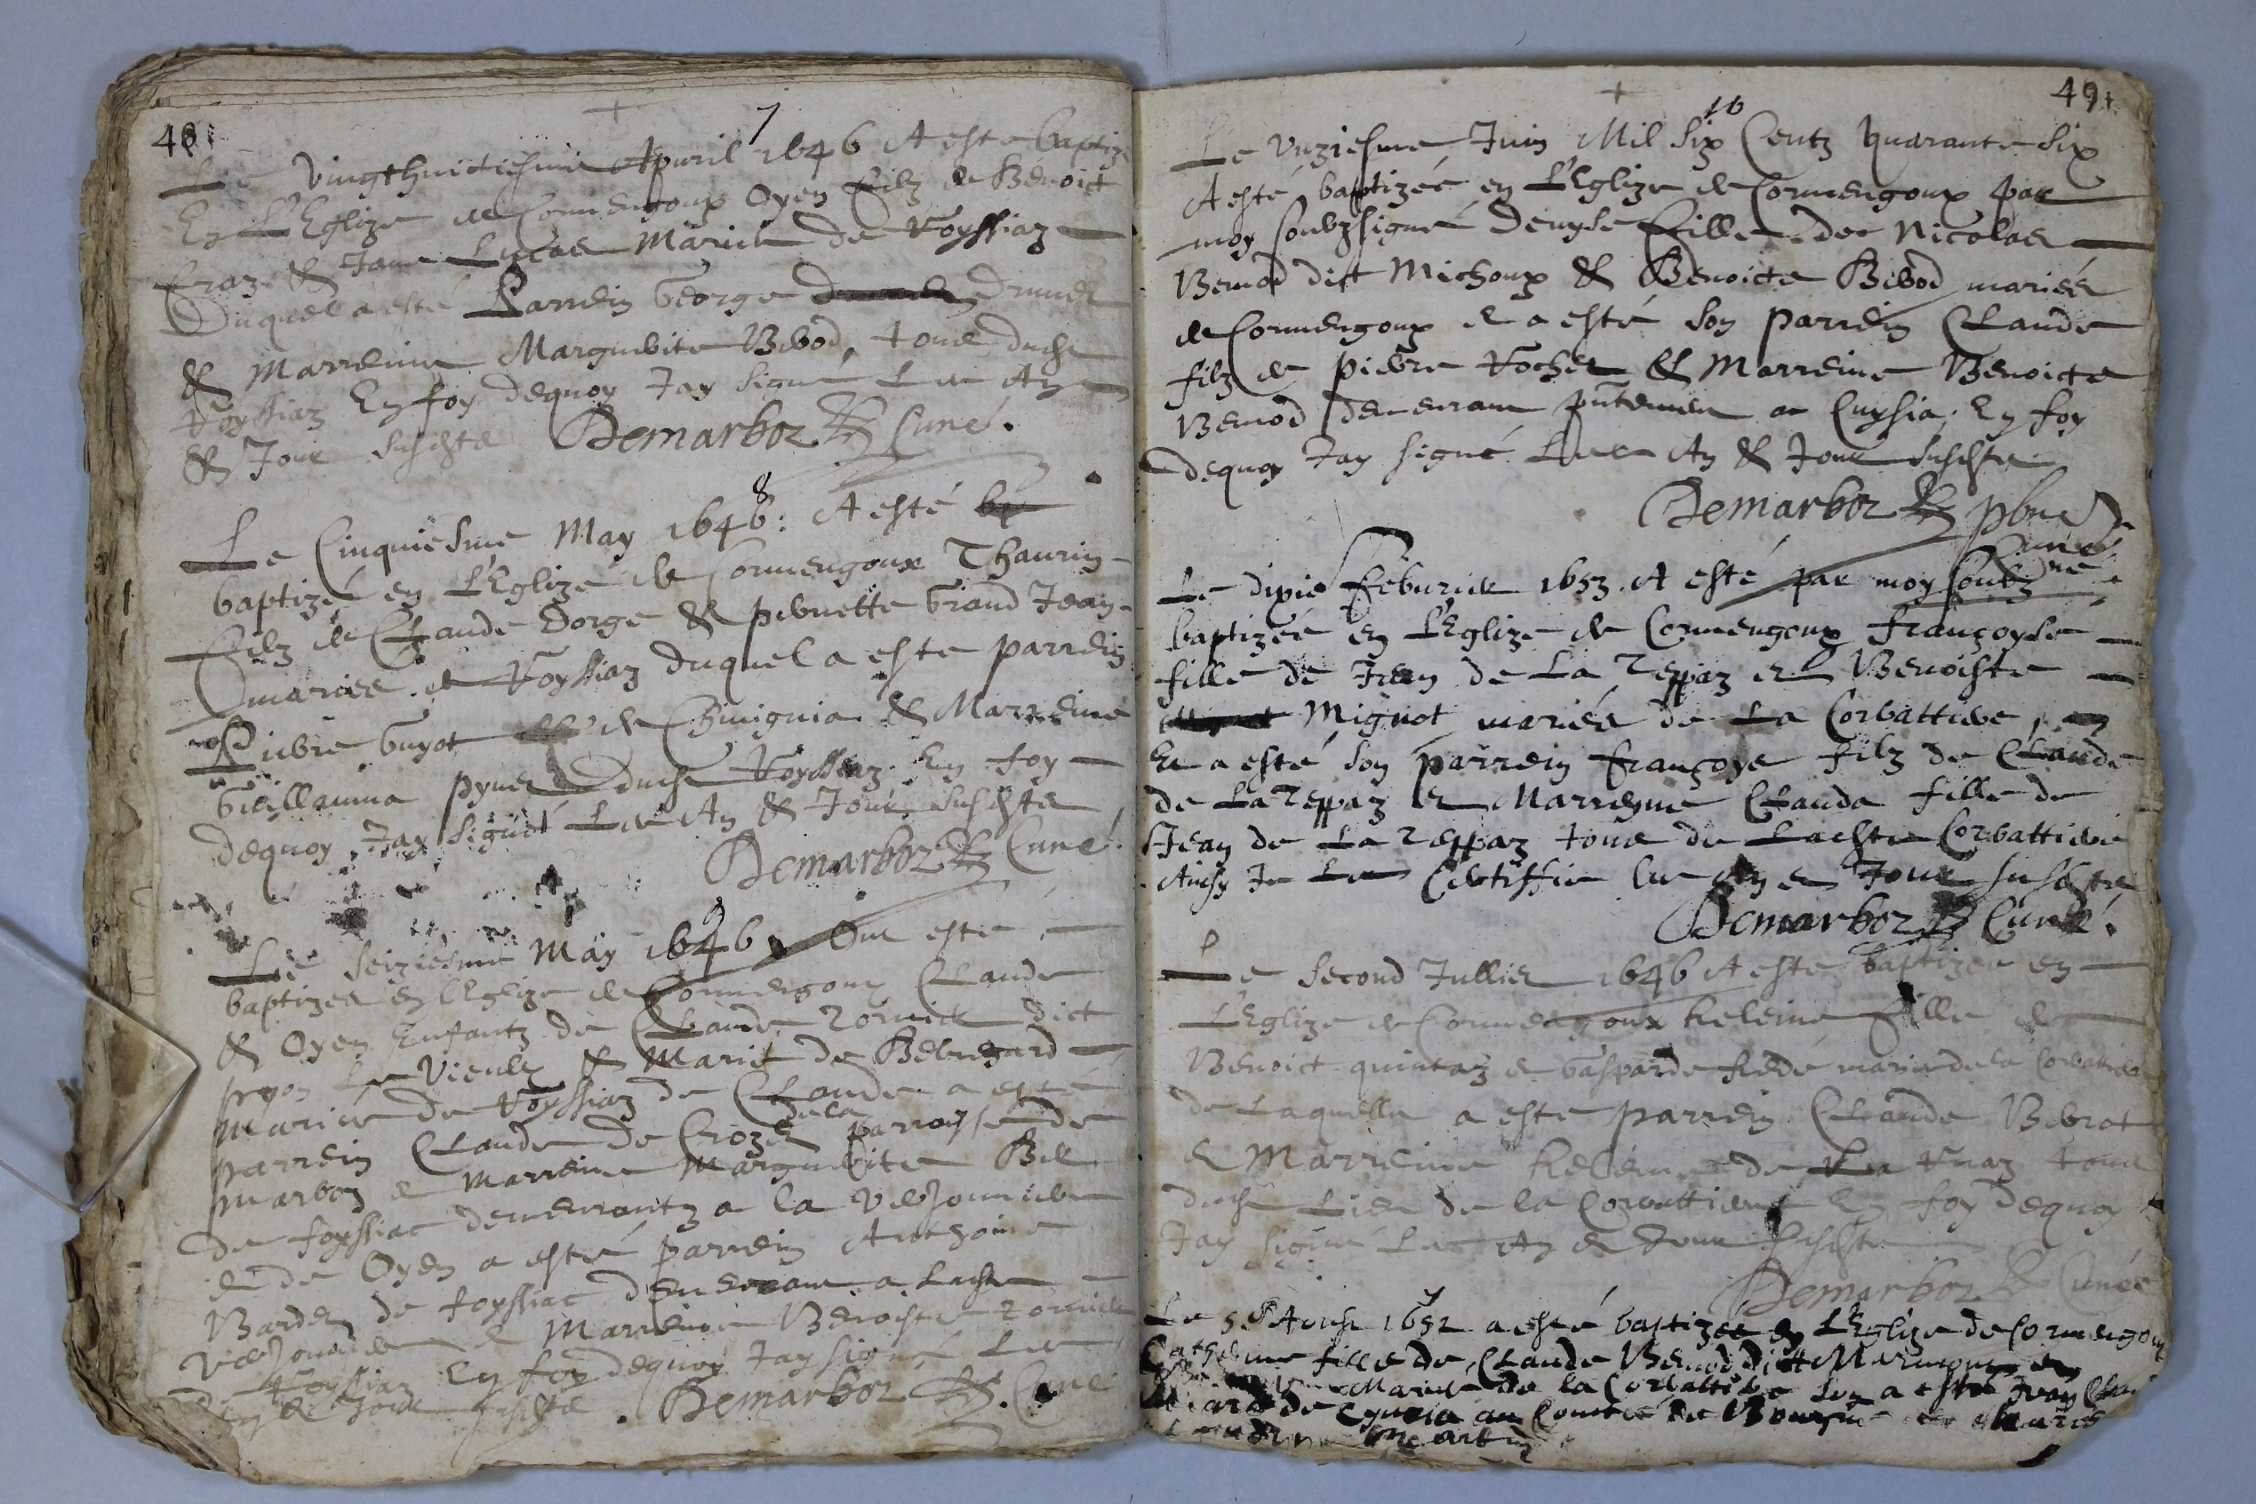 48
7
Le Vingthuictiesme Apvril 1646 A esté baptizé
En L'Eglize de Cormengoux Oyen Filz de Benoict
Craz & Jane Lucas Mariés de Voyssiaz
Duquel a esté Parrein George Drunet
& Marreine Marguerite Verod, tous dudict
Voyssiaz En foy dequoy Jay signé Les An
& Jour susdicts Demarboz Curé.
8
Le Cinquiesme May 1646: A esté
baptizé en L'Eglize de Cormengoux Thaurin
Filz de Claude Dorge & pernette Grand Jean
mariés de Voyssiaz duquel a esté parrein
Pierre Guyot de Chivignia & Marreine
Guillauma pynet dudict Voyssiaz En foy
dequoy Jay signé Les An & Jour susdicts
Demarboz Curé.
9
Le seiziesme May 1646 Ont esté
baptizés en l'Eglize de Cormengoux Claude
& Oyen Enfantz de Claude Tornier dict
Le Vieulx & Marie de Beluegard
mariés de Voyssiaz de Claude a esté
parrein Claude de Croze de la parroysse de
Marboz & Marreine Marguerite
de foyssiac demeurantz a la
& de Oyen a esté parrein Anthoine
Bardet de foyssiac demeurant a Ladicte
& Marreine Benoiste Tornier
de Voyssiaz En foy dequoy Jay signé Les
An & Jour susdicts. Demarboz. Curé
49
10
Le Unziesme Juin Mil Six Centz Quarante Six
A esté baptizée en L'Eglize de Cormengoux par
moy soubzsigné Denyse Fille de Nicolas
Vernod dict Michoux & Benoicte Verod mariés
de Cormengoux & a esté son parrein Claude
filz de Pierre Vochet & Marreine Benoicte
Vernod demeurant pntement a Cuysia. En foy
dequoy Jay signé Les An & Jour susdicts
Demarboz pbre
Curé
Le dixie Feburier 1653. A esté par moy soubzné
baptizée en L'Eglize de Cormengoux Françoyse
fille de Jean de La Teppaz et Benoiste
Mignot mariés de La Corbattiere,
Et a esté son parrein Françoys filz de Claude
de La Teppaz et Marreyne Clauda fille de
Jean de La Teppaz tous de Ladicte Corbattiere
Ainsy Je Le Certiffie les An et Jour susdicts
Demarboz Curé.
Le Second Jullier 1646 A esté baptizée en
L'Eglize de Cormengoux heleine Fille de
Benoict quintaz & Gasparde fredé mariés de la Corbattiere
de Laquelle a esté parrein Claude Vebrot
& Marreine heleine de La Vuaz tous
dudict Lieu de la Corbattiere En foy dequoy
Jay signé Les An & Jour susdicts
Demarboz Curé
Le 5e Aoust 1652 a esté baptizée en L'Eglize de Cormengoux
Catherine fille de Claude Vernod dict Marmont et
Mariés de la Corbattiere Son a esté Jean
de Cynsia au Comté de Bourgne
Martin